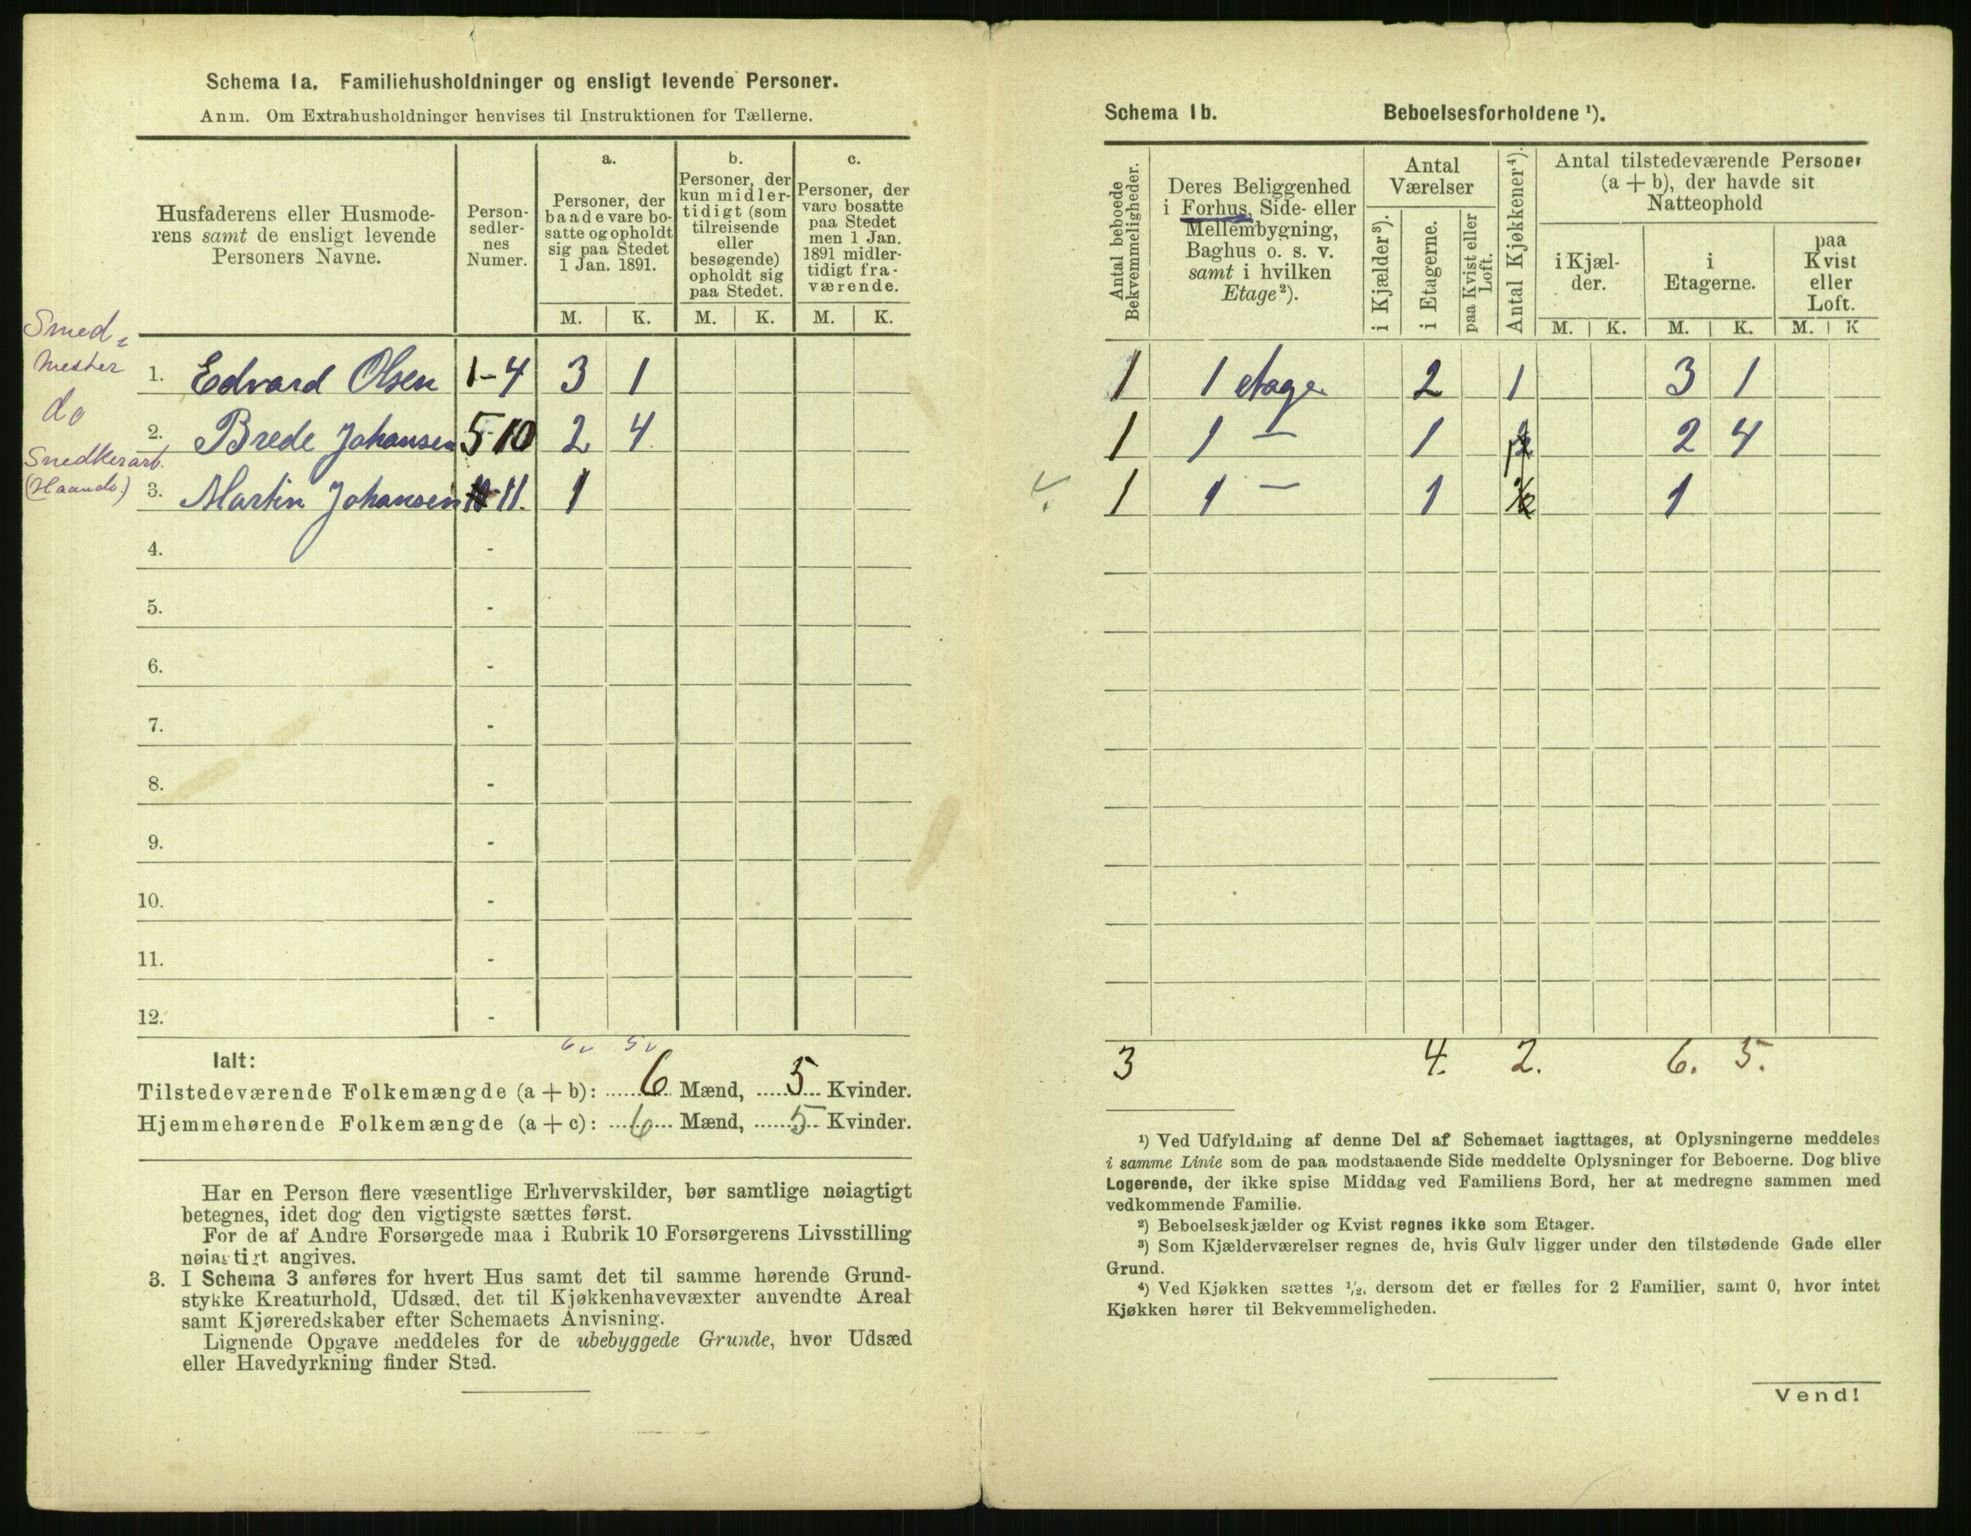 Schema 1a. Familiehusholdninger og ensligt levende Personer.
Anm. Om Extrahusholdninger henvises til Instruktionen for Tællerne.
Husfaderens eller Husmode-
rens samt de ensligt levende
Personers Navne.
Person-
sedler-
nes
Numer.
a.
Personer, der
baade vare bo-
satte og opholdt
sig paa Stedet
1 Jan. 1891.
b.
Personer, der
kun midler-
tidigt (som
tilreisende
eller
besøgende)
opholdt sig
paa Stedet.
c.
Personer, der
vare bosatte
paa Stedet
men 1 Jan.
1891 midler-
tidigt fra-
værende.
M. K. M. K. M. K.
Smed-
mester
1. Edvard Olsen 1-4 3 1
do
2. Brede Johansen 5-10 2 4
Snedkerarb.
(Haandv.)
3. Martin Johansen 11. 1
4. -
5. -
6. -
7. -
8. -
9. -
10. -
11. -
12. -
6v 5v
Ialt:
Tilstedeværende Folkemængde (a + b): 6 Mænd, 5 Kvinder.
Hjemmehørende Folkemængde (a + c): 6 Mænd, 5 Kvinder.
Har en Person flere væsentlige Erhvervskilder, bør samtlige nøiagtigt
betegnes, idet dog den vigtigste sættes først.
For de af Andre Forsørgede maa i Rubrik 10 Forsørgerens Livsstilling
nøiagtigt angives.
3. I Schema 3 anføres for hvert Hus samt det til samme hørende Grund-
stykke Kreaturhold, Udsæd, det til Kjøkkenhavevæxter anvendte Areal
samt Kjøreredskaber efter Schemaets Anvisning.
Lignende Opgave meddeles for de ubebyggede Grunde, hvor Udsæd
eller Havedyrkning finder Sted.
Schema 1b. Beboelsesforholdene ¹).
Antal beboede
Bekvemmeligheder.
Deres Beliggenhed
i Forhus, Side- eller
Mellembygning,
Baghus o. s. v.
samt i hvilken
Etage²).
Antal
Værelser
i Kjælder³).
i Etagerne.
paa Kvist eller
Loft.
Antal Kjøkkener⁴).
Antal tilstedeværende Personer
(a + b), der havde sit
Natteophold
i Kjæl-
der.
i
Etagerne.
paa
Kvist
eller
Loft.
M. K. M. K. M. K
1 1 etage 2 1 3 1
1 1 — 1 2 4
1 1 — 1 1
3 4. 2. 6. 5.
¹) Ved Udfyldning af denne Del af Schemaet iagttages, at Oplysningerne meddeles
i samme Linie som de paa modstaaende Side meddelte Oplysninger for Beboerne. Dog blive
Logerende, der ikke spise Middag ved Familiens Bord, her at medregne sammen med
vedkommende Familie.
²) Beboelseskjælder og Kvist regnes ikke som Etager.
³) Som Kjælderværelser regnes de, hvis Gulv ligger under den tilstødende Gade eller
Grund.
⁴) Ved Kjøkken sættes ½, dersom det er fælles for 2 Familier, samt 0, hvor intet
Kjøkken hører til Bekvemmeligheden.
Vend!